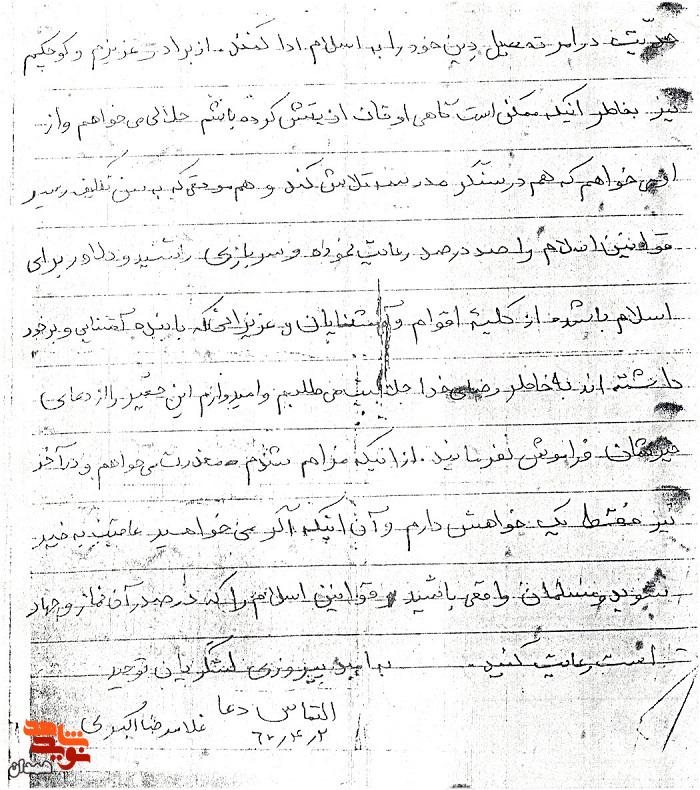 جدیّت در امر تحصیل دین خود را به اسلام ادا کنند. از برادر عزیزم و کوچکیم
نیز بخاطر اینکه ممکن است گاهی اوقات اذیتش کرده باشم حلالی می خواهم و از
او می خواهم که هم در سنگر مدرسه تلاش کند و هم موقعی که به سن تکلیف رسید
قوانین اسلام را صد در صد رعایت نموده و سربازی رشید و دلاور برای
اسلام باشد. از کلیه اقوام و آشنایان و عزیزانی که با بنده آشنایی و برخورد
داشته اند به خاطر رضای خدا حلالیت می طلبم و امیدوارم این حقیر را از دعای
خیرشان فراموش نفرمایند. از اینکه مزاحم شدم معذرت می خواهم و در آخر
نیز فقط یک خواهش دارم و آن اینکه اگر می خواهید عاقبت به خیر
شوید مسلمان واقعی باشید و قوانین اسلام را که در صدر آن نماز و جهاد
است رعایت کنید. به امید پیروزی لشگریان توحید
التماس دعا غلامرضا اکبری
۶۲٫۴٫۲
شاهد
نوید
همدان